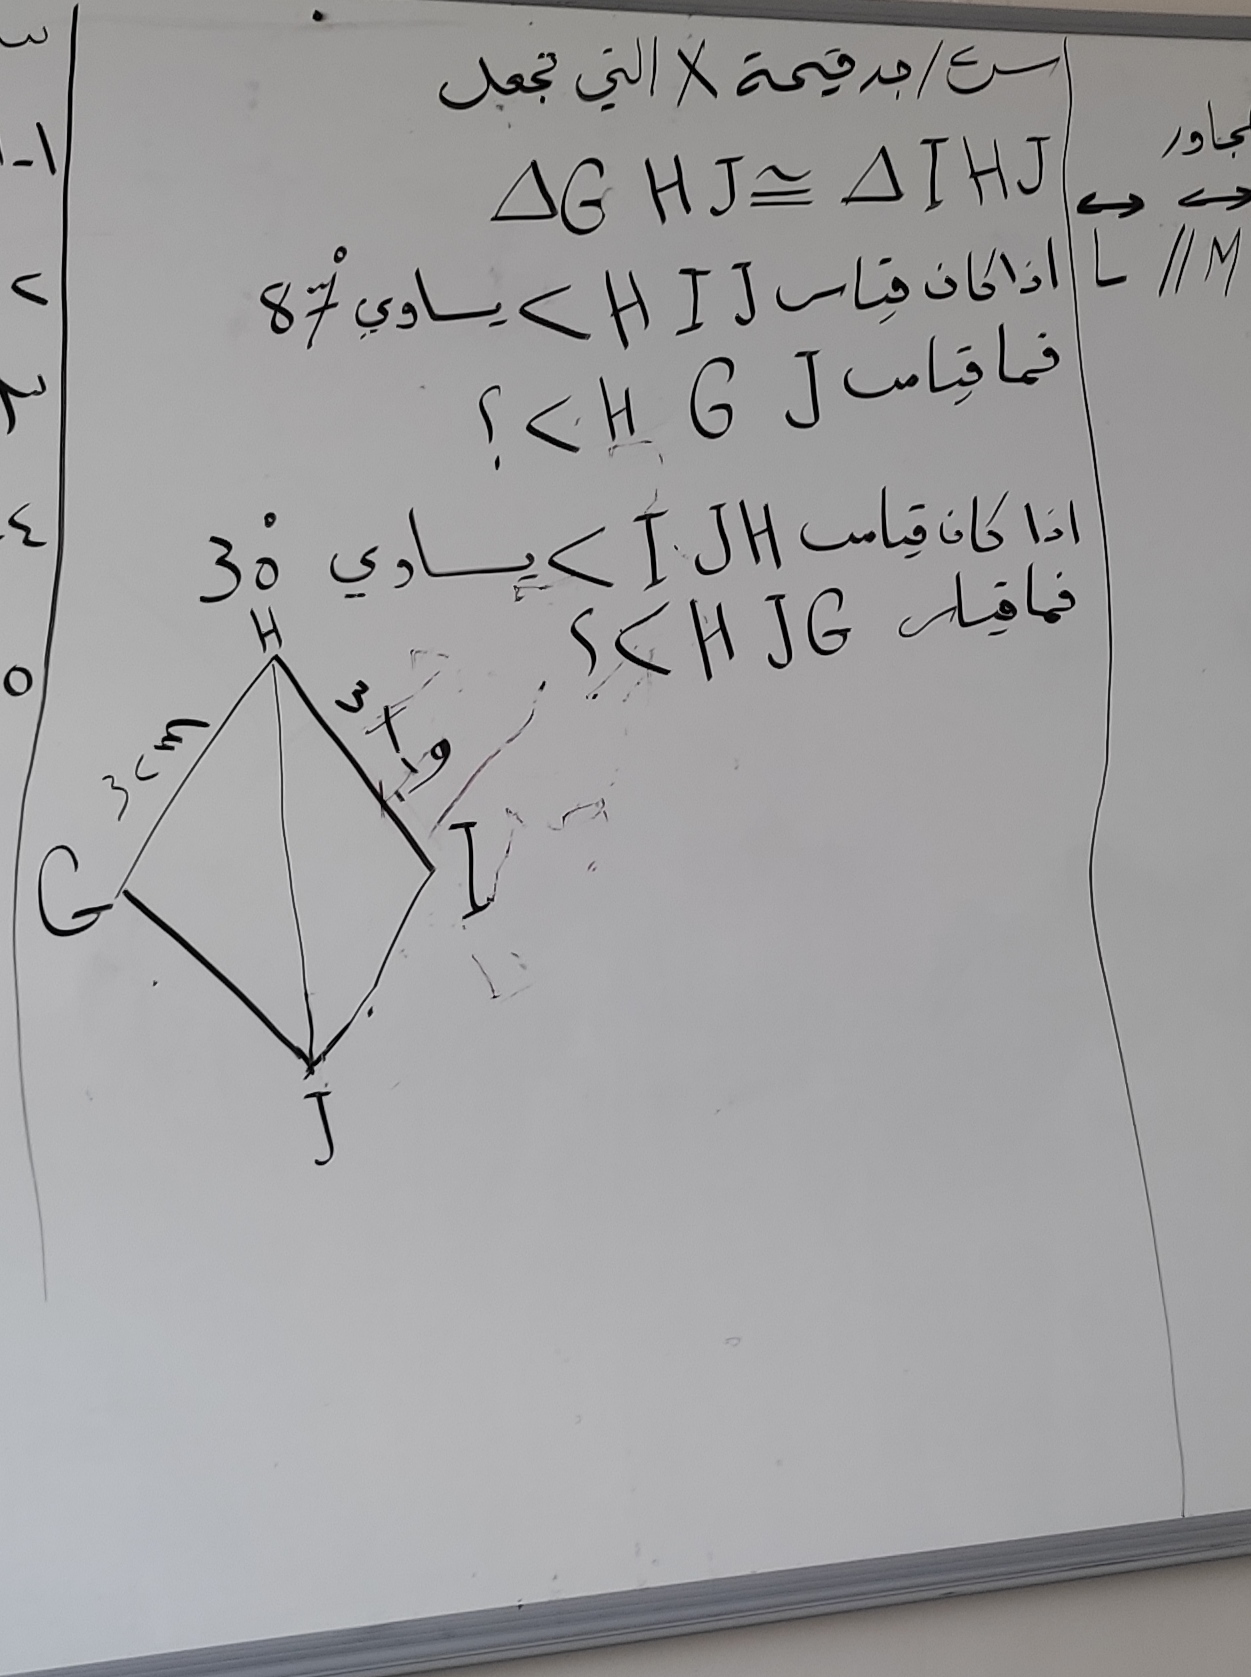 س٤/ جد قيمة X التي تجعل
ΔG HJ ≅ Δ I HJ
اذا كان قياس H I J > يساوي 87°
فما قياس H G J > ؟
اذا كان قياس I JH > يساوي 30°
فما قياس H JG > ؟
H
3cm
G
I
J
المجاور
L // M
١-
٢
٣
٤
٥